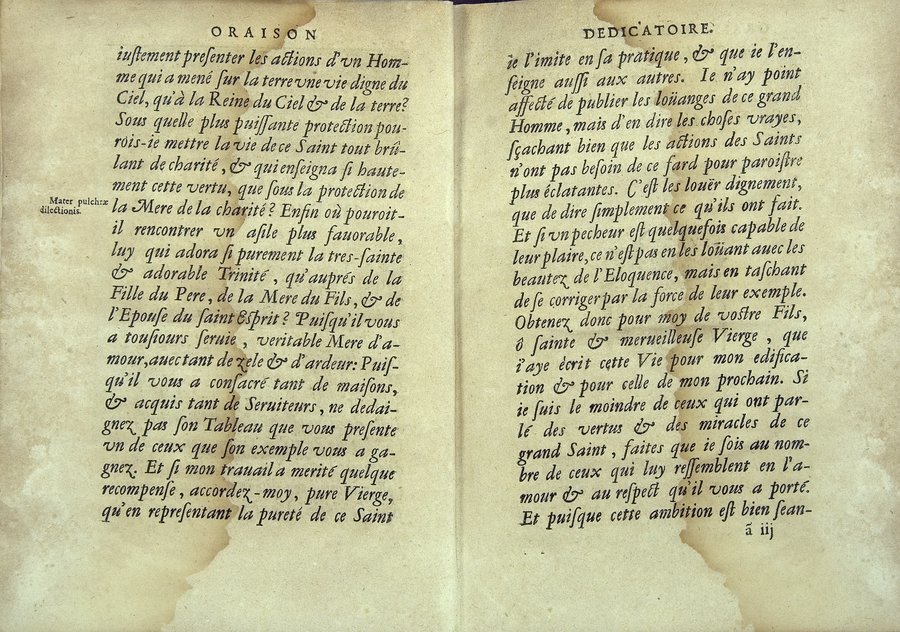 ORAISON
iuſtement preſenter les actions d'vn Hom-
me qui a mené ſur la terre vne vie digne du
Ciel, qu'à la Reine du Ciel & de la terre?
Sous quelle plus puiſſante protection pou-
rois-ie mettre la vie de ce Saint tout brû-
lant de charité, & qui enſeigna ſi haute-
ment cette vertu, que ſous la protection de
Mater pulchræ
dilectionis.
la Mere de la charité? Enfin où pouroit-
il rencontrer vn aſile plus fauorable,
luy qui adora ſi purement la tres-sainte
& adorable Trinité, qu'auprés de la
Fille du Pere, de la Mere du Fils, & de
l'Epouſe du ſaint Eſprit? Puiſqu'il vous
a touſiours ſeruie, veritable Mere d'a-
mour, auec tant de zele & d'ardeur: Puiſ-
qu'il vous a conſacré tant de maiſons,
& acquis tant de Seruiteurs, ne dedai-
gnez pas ſon Tableau que vous preſente
vn de ceux que ſon exemple vous a ga-
gnez. Et ſi mon trauail a merité quelque
recompenſe, accordez-moy, pure Vierge,
qu'en repreſentant la pureté de ce Saint
DEDICATOIRE.
ie l'imite en ſa pratique, & que ie l'en-
ſeigne auſſi aux autres. Ie n'ay point
affecté de publier les loüanges de ce grand
Homme, mais d'en dire les choſes vrayes,
ſçachant bien que les actions des Saints
n'ont pas beſoin de ce fard pour paroiſtre
plus éclatantes. C'eſt les louër dignement,
que de dire ſimplement ce qu'ils ont fait.
Et ſi vn pecheur eſt quelquefois capable de
leur plaire, ce n'eſt pas en les loüant auec les
beautez de l'Eloquence, mais en taſchant
de ſe corriger par la force de leur exemple.
Obtenez donc pour moy de voſtre Fils,
ô ſainte & merueilleuſe Vierge, que
i'aye écrit cette Vie pour mon edifica-
tion & pour celle de mon prochain. Si
ie ſuis le moindre de ceux qui ont par-
lé des vertus & des miracles de ce
grand Saint, faites que ie ſois au nom-
bre de ceux qui luy reſſemblent en l'a-
mour & au reſpect qu'il vous a porté.
Et puiſque cette ambition eſt bien ſean-
ã iij